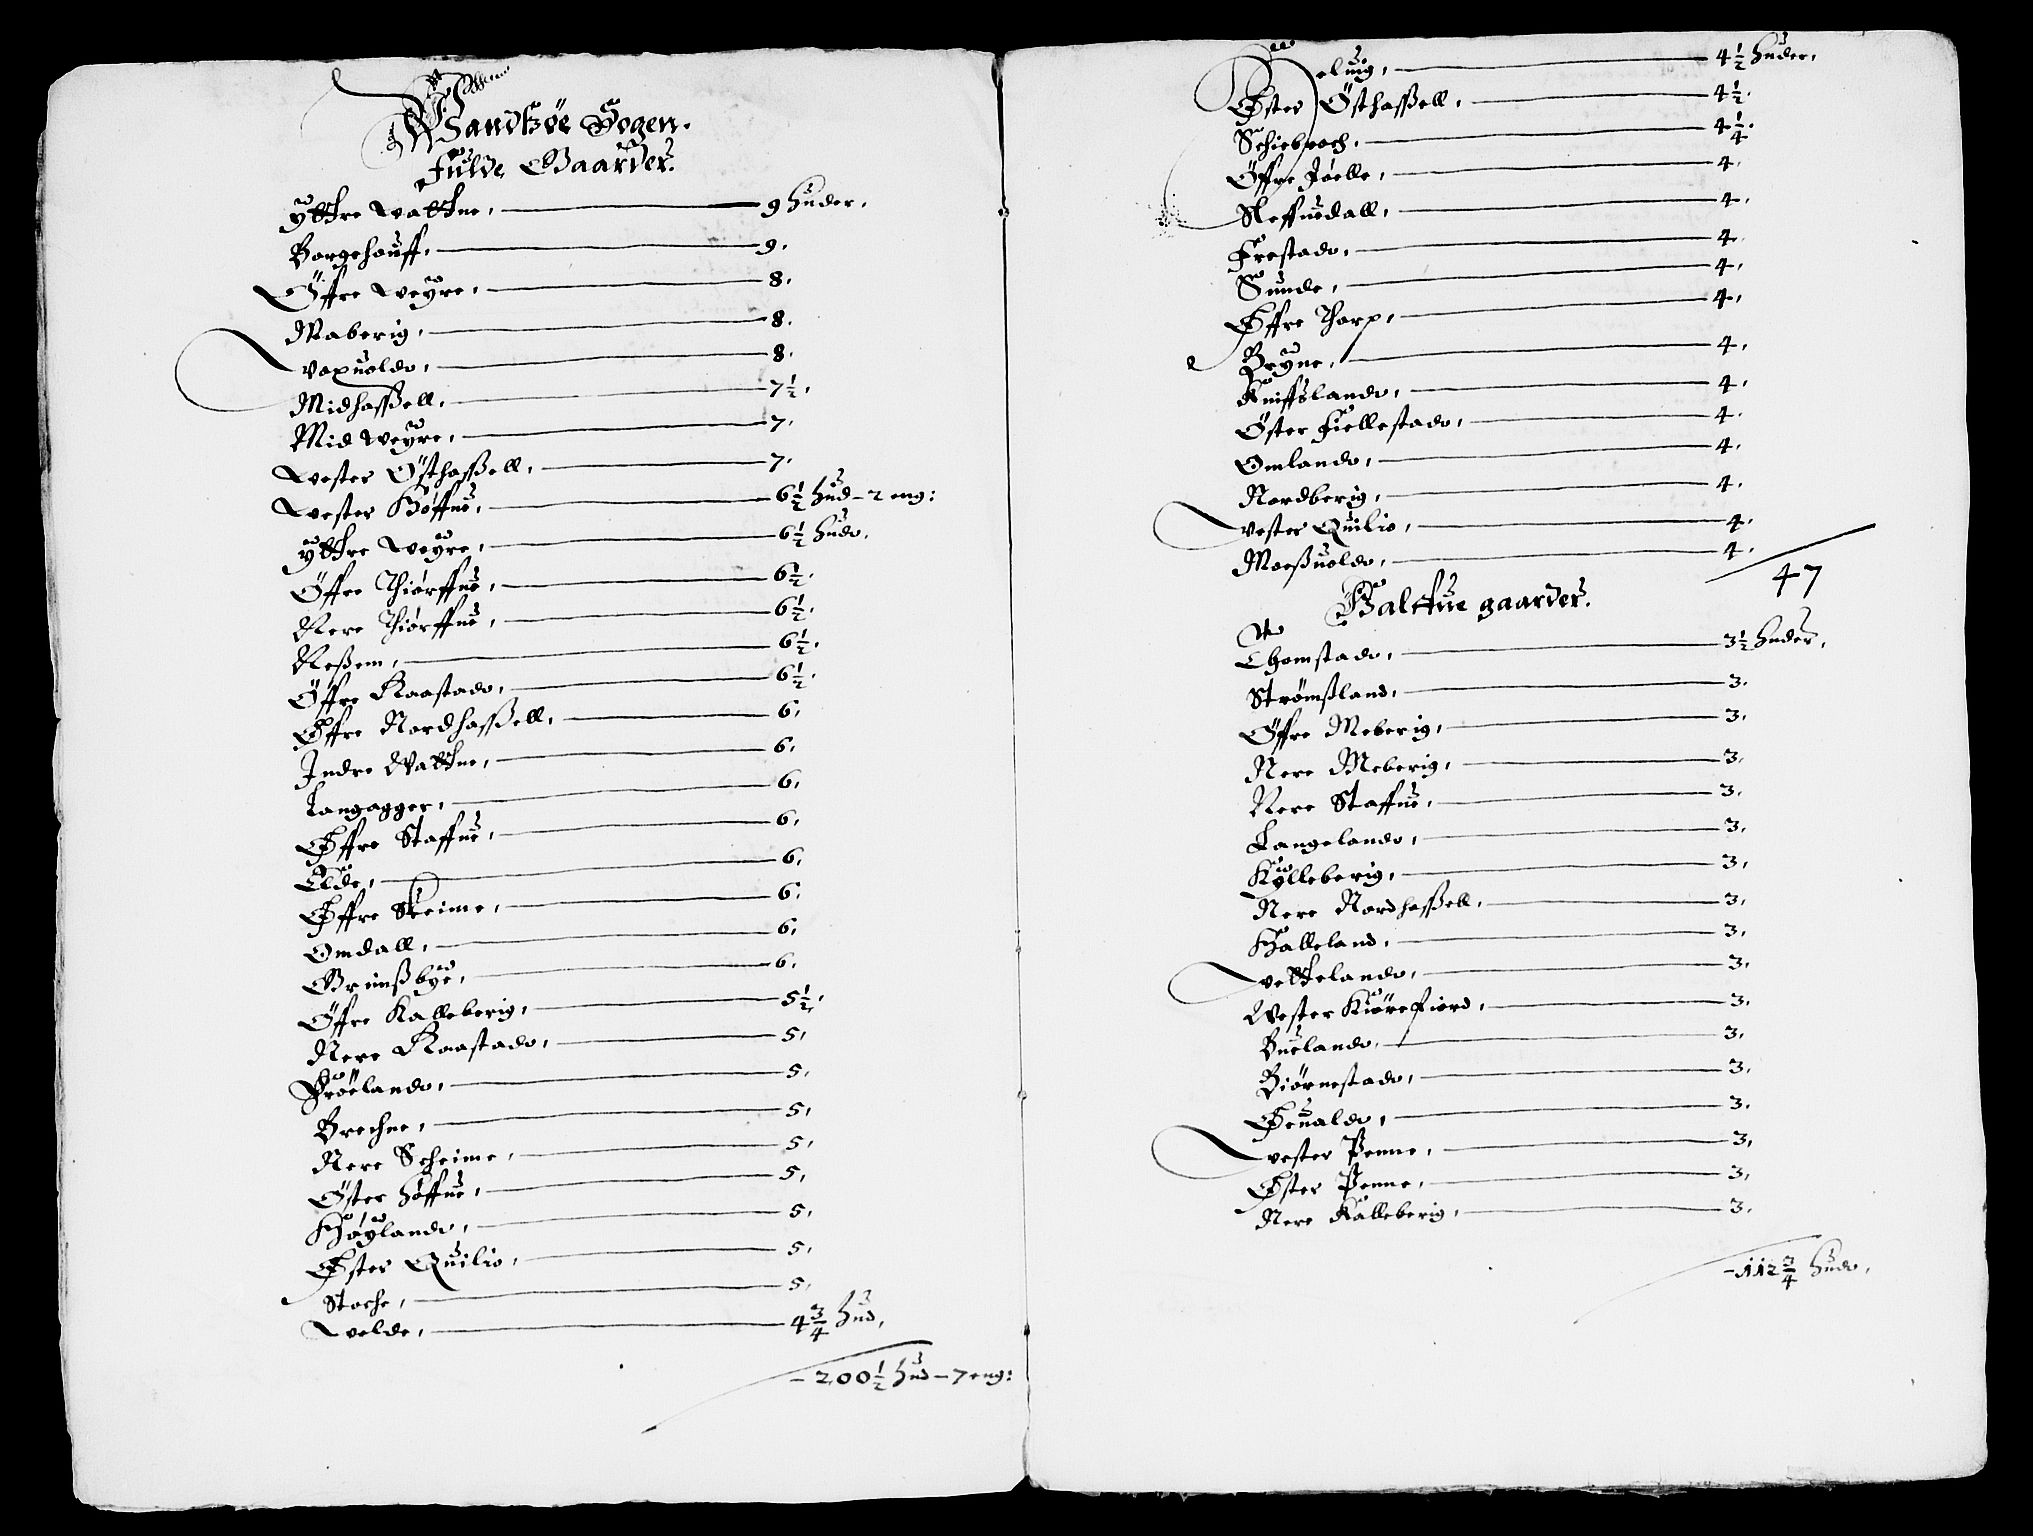 Wandsøe Sogen.
Fulde Gaarder.
Yttre Wattne, 9 huder,
Borgehouff, 9.
Öffre Weyre, 8.
Maberig, 8.
Voxuoldo, 8.
Midhaßell, 7½,
Mid Weyre, 7.
Wester Östhaßell, 7.
Wester Höffue, 6½ hud - 2 eng:
Yttre Weyre, 6½ hudo,
Öffre Thiørffue, 6½.
Nere Thiørffue, 6½.
Neßem, 6½.
Öffre Raastado, 6½.
Øffre Nordhaßell, 6,
Indre Wattne, 6,
Langagger, 6,
Øffre Staffue, 6,
Elde, 6,
Øffre Skeime, 6,
Omdall, 6,
Brimßbye, 6,
Öffre Kalleberig, 5½,
Nere Raastado, 5,
Frøelando, 5,
Brechne, 5,
Nere Scheime, 5,
Öster Høffue, 5,
Høylando, 5,
Øster Quilio, 5,
Stoche, 5,
Welde, 4¾ hud,
- 200½ hud - 7 eng:
eluig, 4½ huder,
Øster Östhaßell, 4½.
Schiebroch, 4¼.
Öffre Jøelle, 4.
Sleffuedall, 4.
Frestado, 4.
Sunde, 4,
Øffre Thorp, 4,
Bryne, 4,
Kniffslando, 4,
Öster Fiellestado, 4.
Omlando, 4,
Nordberig, 4,
Vester Quilio, 4,
Moeßuoldo, 4.
47
Halffue gaarder.
Thomstado, 3½ huder,
Strömßland, 3.
Öffre Meberig, 3.
Nere Meberig, 3,
Nere Staffue, 3.
Langelando, 3,
Kylleberig, 3,
Nere Nordhaßell, 3,
Halleland, 3,
Vettelando, 3,
Wester Kiørefiord, 3,
Buelando, 3,
Biörnestado, 3,
Øeualdo, 3.
Vester Penne, 3,
Øster Penne, 3,
Nere Kalleberig, 3.
- 112¾ hudo,